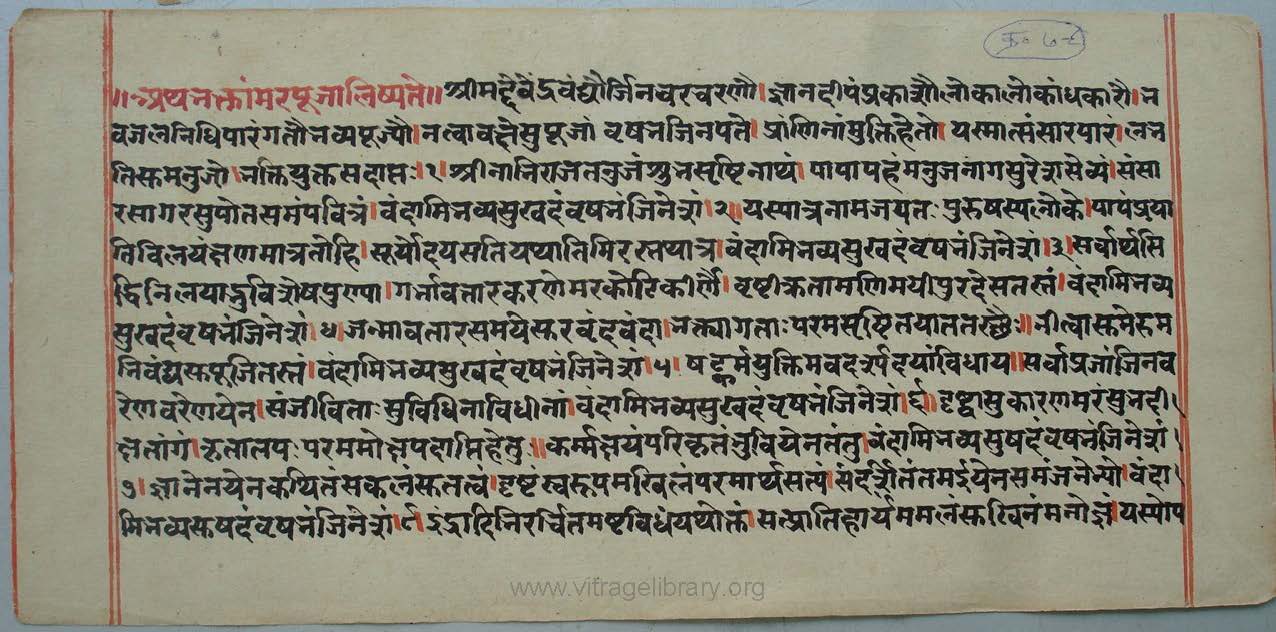 क्र० ७-८
॥अथ भक्तांमरपूजा लिष्यते॥ श्रीमद्देवेंद्रवंद्यौर्जिनवरचरणौ। ज्ञानदीपंप्रकाशौलोकालोकांधकारौ। भ
वजलनिधिपारंगतौभव्यपूज्यौ। नत्वावक्षेसुपूजां वृषभजिनपते। प्राणिनांमुक्तिहेतो। यस्मात्संसारपारं। लभ
तिस्तमनुजो। भक्तियुक्तसदाप्तः।१। श्रीनाभिराजतनुजंशुभसृष्टिनाथं। पापापहंमनुजनागसुरेशसेव्यं। संसा
रसागरसुपोतसमंपवित्रं। वंदामिभव्यसुखदंवृषभंजिनेशं।२॥ यस्यात्रनामजपतः पुरुषस्यलोके। पापंप्रया
तिविलयंक्षणमात्रतोहि। सूर्योदयसतियथातिमिरस्तथात्र। वंदामिभव्यसुखदंवृषभंजिनेशं।३। सर्वार्थसि
द्धिनिलयाद्भुविशेषपुण्या। गर्भावतारकरणेमरकोटिकीर्णै। वृष्टीकृतामणिमयीपुरदेसतस्तं। वंदामिभव्य
सुखदंवृषभंजिनेशं।४। जन्मावतारसमयेस्तरवृंदवंद्या। भक्त्यागताः परमसृष्टितयातत
नीत्वास्तमेरुम
भिवंद्यस्तपूजितस्तं। वंदामिभव्यसुखदंवृषभंजिनेशं।५। षट्कर्मयुक्तिमवदर्स्यदयांविधाय॥ सर्वाप्रजांजिनव
रेणवरेणयेन। संजीविताः सुविधिनाविधीनां। वंदामिभव्यसुखदंवृषभंजिनेशं।६। दृष्ट्वासुकारणमरंसुभदी।
क्षतांग। कृतालपः परममोक्षपदाप्तिहेतु॥ कर्म्मक्षयंपरिकृतंभुवियेनतंतु। वंदामिभव्यसुषदंवृषभंजिनेशं।
७। ज्ञानेनयेनकथितंसकलंस्ततत्वं। दृष्टंस्वरूपमखिलंपरमार्थसत्यं। संदर्शितंतमर्इयेनसमंजनेभ्यो। वंदा।
मिभव्यस्तषदंवृषभंजिनेशं।८। इंद्रादिभिरर्चितमष्टविधंयथोक्तं। सत्प्रातिहार्यममलंस्तखिनंमनोज्ञं। यस्योप
www.vitragelibrary.org